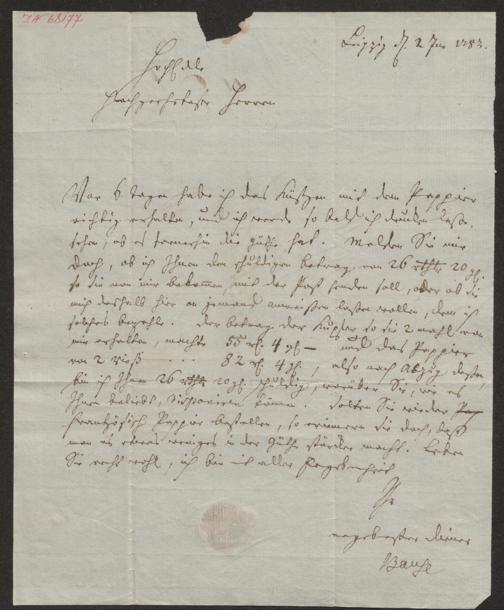 IN 68177
Leipzig d. 2 Jun 178
HochEdle
Hochgeehrteste Herren
Vor 6 tagen habe ich das Küstgen mit dem Pappier
richtig erhalten, und ich werde so bald ich drucken lasse,
sehen, ob es fernerhin die Güthe hat. Melden Sie mir
doch, ob ich Ihnen den schuldigen Betrag von 26 rthlr 20 gl.
so Sie von mir bekommen mit der Post senden soll, oder ob Sie
mich deshalb hier an jemand anweisen lassen wollen, dem ich
solches bezahle. Der betrag der Kupfer so Sie 2 mahl von
mir erhalten, macht 55 rl 4 gl — und das Pappier
von 2 82 rl 4 gl, also nach Abzug dessen
bin ich Ihnen 26 rthlr 20 gl. schuldig, worüber Sie, wie es
Ihnen beliebt, disponieren können. Sollten Sie wieder
französisch Pappier bestellen, so erinnern Sie doch, daß
man es etwas weniges in der Güthe stärker macht. Leben
Sie recht wohl, ich bin mit aller
Ihr
ergebenster Diener
Bause